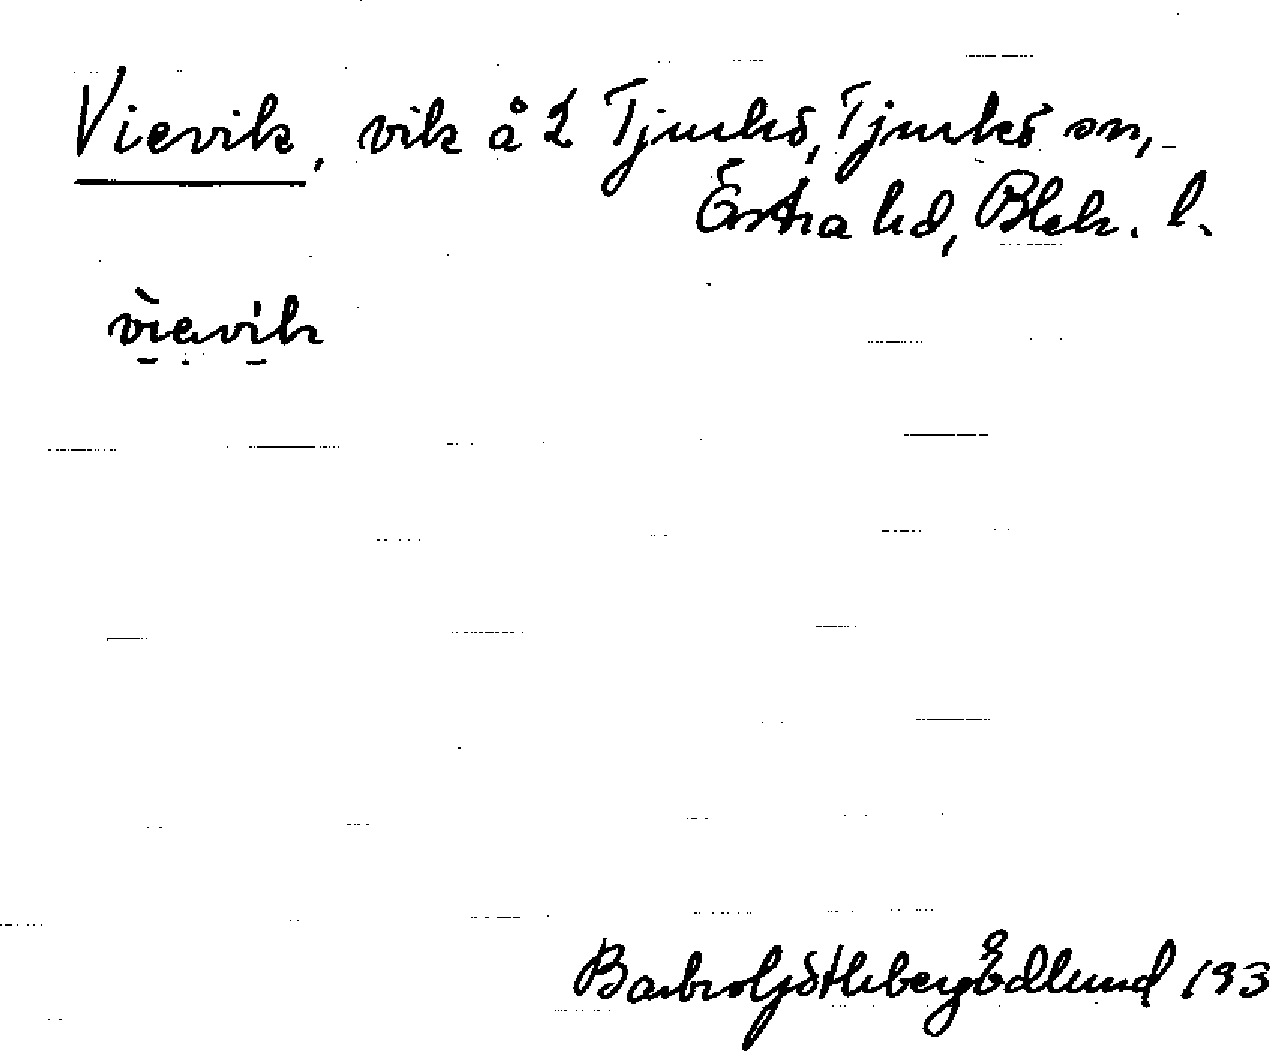 Vievik, vik å 2 Tjurkö, Tjurkö sn,
Östra hd, Blek. l.
vìavik
Barbro Götlberg Edlund 193